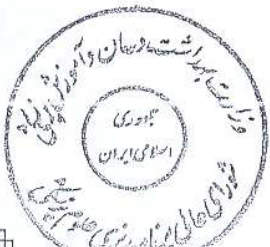 وزارت بهداشت، درمان و آموزش پزشکی
جمهوری
اسلامی ایران
شورای عالی برنامه‌ریزی علوم پزشکی